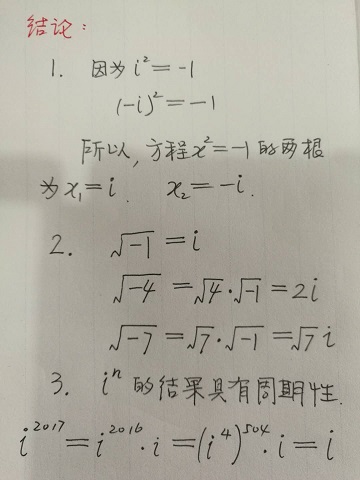 结论:
1. 因为 i² = -1
(-i)² = -1
所以, 方程x² = -1 的两根
为 x₁ = i. x₂ = -i.
2. √-1 = i
√-4 = √4·√-1 = 2i
√-7 = √7·√-1 = √7 i
3. iⁿ 的结果具有周期性.
i²⁰¹⁷ = i²⁰¹⁶·i = (i⁴)⁵⁰⁴·i = i